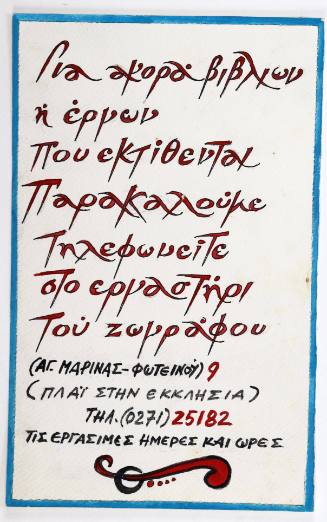 Για αγορά βιβλίων
ή έργων
Που εκτίθενται
Παρακαλούμε
Τηλεφωνείτε
στο εργαστήρι
Τού ζωγράφου
(ΑΓ. ΜΑΡΙΝΑΣ-ΦΩΤΕΙΝΟΥ) 9
(ΠΛΑΪ ΣΤΗΝ ΕΚΚΛΗΣΙΑ)
ΤΗΛ. (0271) 25182
ΤΙΣ ΕΡΓΑΣΙΜΕΣ ΗΜΕΡΕΣ ΚΑΙ ΩΡΕΣ